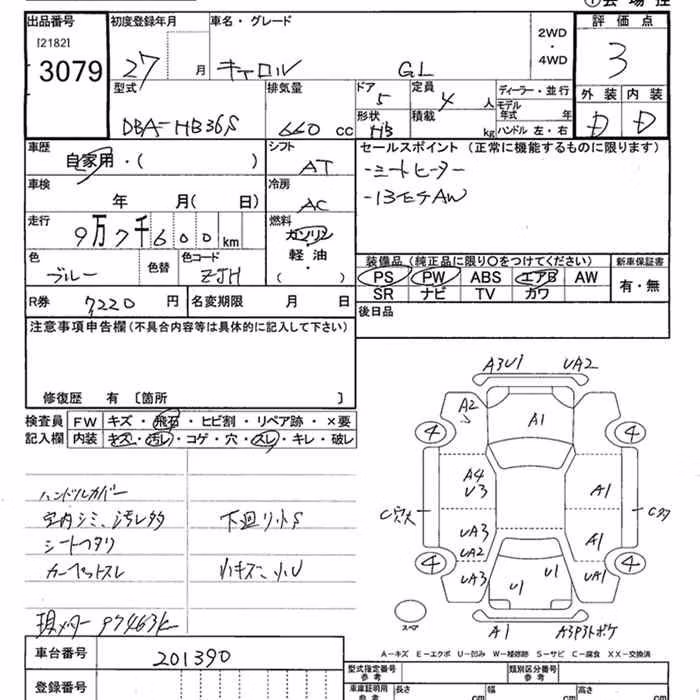 出品番号
[2182]
3079
初度登録年月
27 月
車名・グレード
キャロル GL
2WD
・
4WD
評価点
3
外装 内装
D D
型式
DBA-HB36S
排気量
660 cc
ドア
5
定員
4 人
形状
HB
積載
kg
ディーラー・並行
モデル
年式 年
ハンドル 左・右
車歴
自家用・( )
シフト
AT
セールスポイント (正常に機能するものに限ります)
-シートヒーター
-13インチAW
車検
年 月( 日)
冷房
AC
走行
9万7千600km
燃料
ガソリン
・
軽油
・
( )
色
ブルー
色替
色コード
ZJH
装備品 (純正品に限り○をつけてください)
PS PW ABS エアB AW
SR ナビ TV カワ
新車保証書
有・無
R券 7,220 円
名変期限 月 日
後日品
注意事項申告欄 (不具合内容等は具体的に記入して下さい)
修復歴 有 [箇所 ]
検査員
記入欄
FW キズ・飛石・ヒビ割・リペア跡・×要
内装 キズ・汚レ・コゲ・穴・スレ・キレ・破レ
ハンドルカバー
室内シミ、汚レ多
シートヘタリ
カーペットスレ
現メーター 97463k
下廻り小S
小キズ、小U
A3U1 UA2
A2
A1
4 4
A4
U3
A1
C穴大
C多
UA3
UA2
A1
4 4
UA3
U1 U1
UA1
スペア
A1 A3P3トボケ
A-キズ E-エクボ U-凹み W-補修跡 S-サビ C-腐食 XX-交換済
車台番号
201390
登録番号
型式指定番号
参考
類別区分番号
参考
車庫証明用
参考
長さ cm
幅 cm
高さ cm